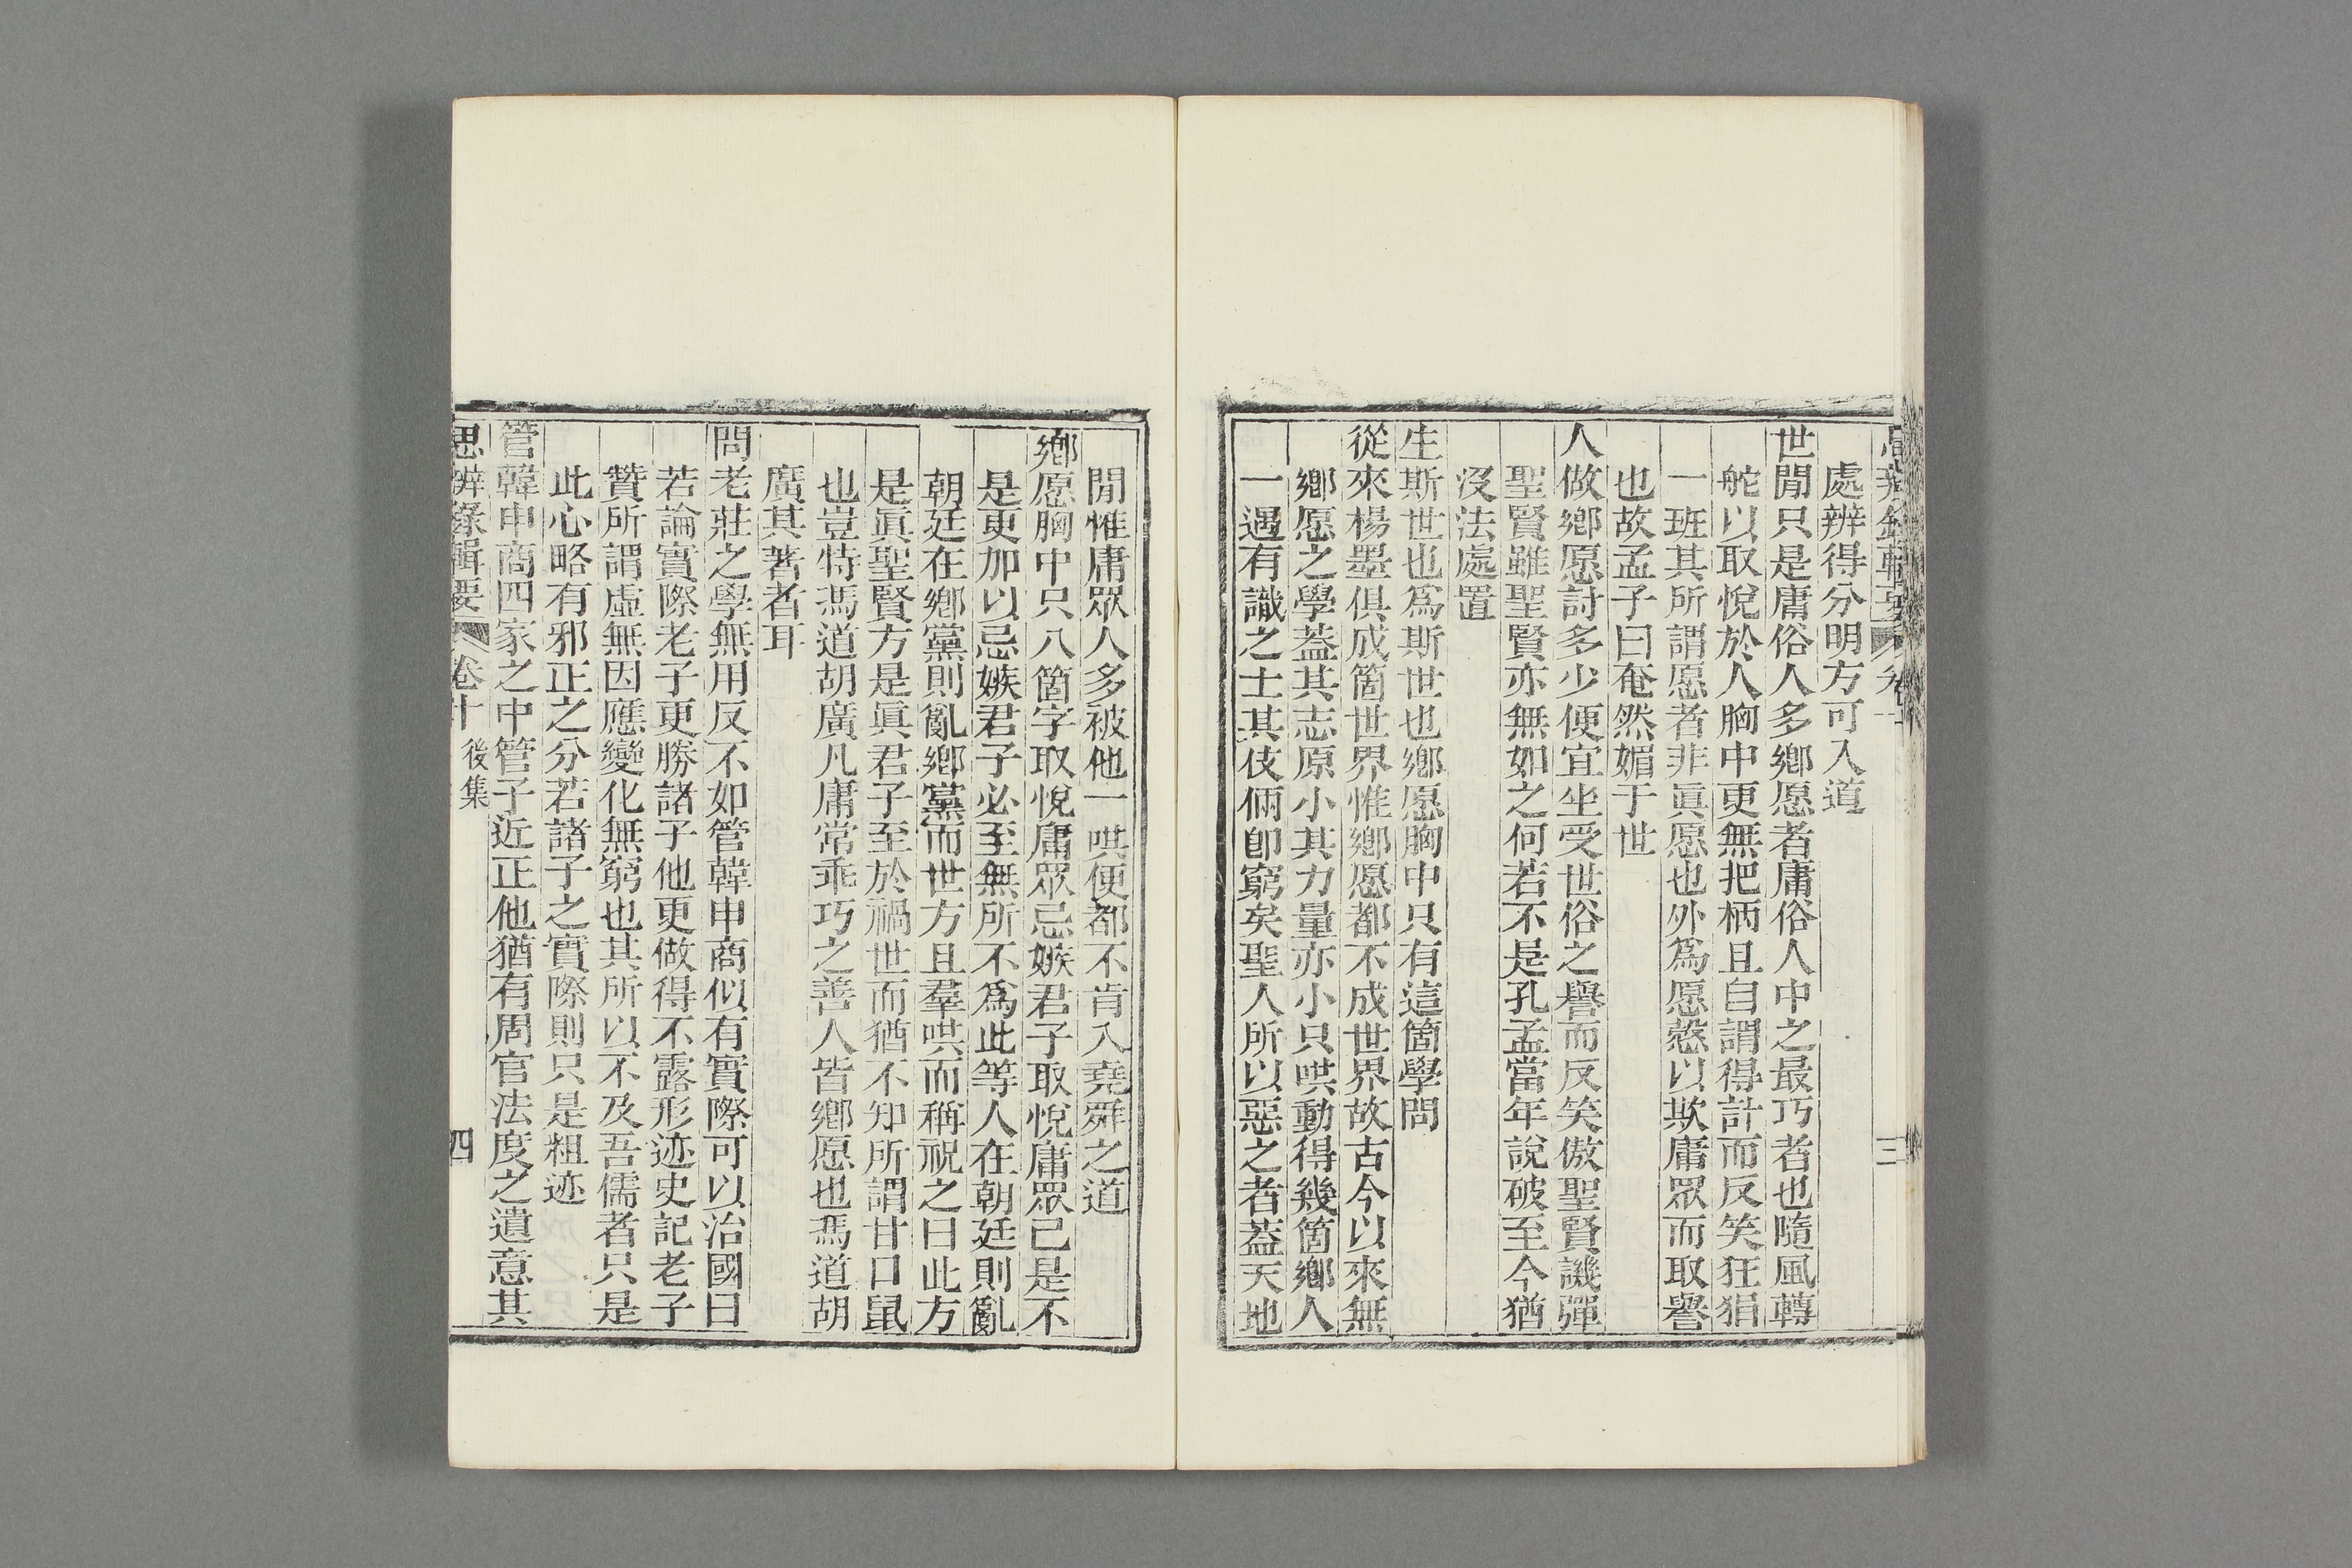 處辨得分明方可入道
世閒只是庸俗人多鄉愿者庸俗人中之最巧者也隨風轉
舵以取悅於人胸中更無把柄且自謂得計而反笑狂狷
一班其所謂愿者非眞愿也外爲愿慤以欺庸眾而取譽
也故孟子曰奄然媚于世
人做鄉愿討多少便宜坐受世俗之譽而反笑傲聖賢譏彈
聖賢雖聖賢亦無如之何若不是孔孟當年說破至今猶
沒法處置
生斯世也爲斯世也鄉愿胸中只有這箇學問
從來楊墨俱成箇世界惟鄉愿都不成世界故古今以來無
鄉愿之學葢其志原小其力量亦小只哄動得幾箇鄉人
一遇有識之士其伎倆卽窮矣聖人所以惡之者葢天地
閒惟庸眾人多被他一哄便都不肯入堯舜之道
鄉愿胸中只八箇字取悅庸眾忌嫉君子取悅庸眾已是不
是更加以忌嫉君子必至無所不爲此等人在朝廷則亂
朝廷在鄉黨則亂鄉黨而世方且羣哄而稱祝之曰此方
是眞聖賢方是眞君子至於禍世而猶不知所謂甘口鼠
也豈特馮道胡廣凡庸常乖巧之善人皆鄉愿也馮道胡
廣其著者耳
問老莊之學無用反不如管韓申商似有實際可以治國曰
若論實際老子更勝諸子他更做得不露形迹史記老子
贊所謂虛無因應變化無窮也其所以不及吾儒者只是
此心略有邪正之分若諸子之實際則只是粗迹
管韓申商四家之中管子近正他猶有周官法度之遺意其
思辨錄輯要 卷十 後集 四